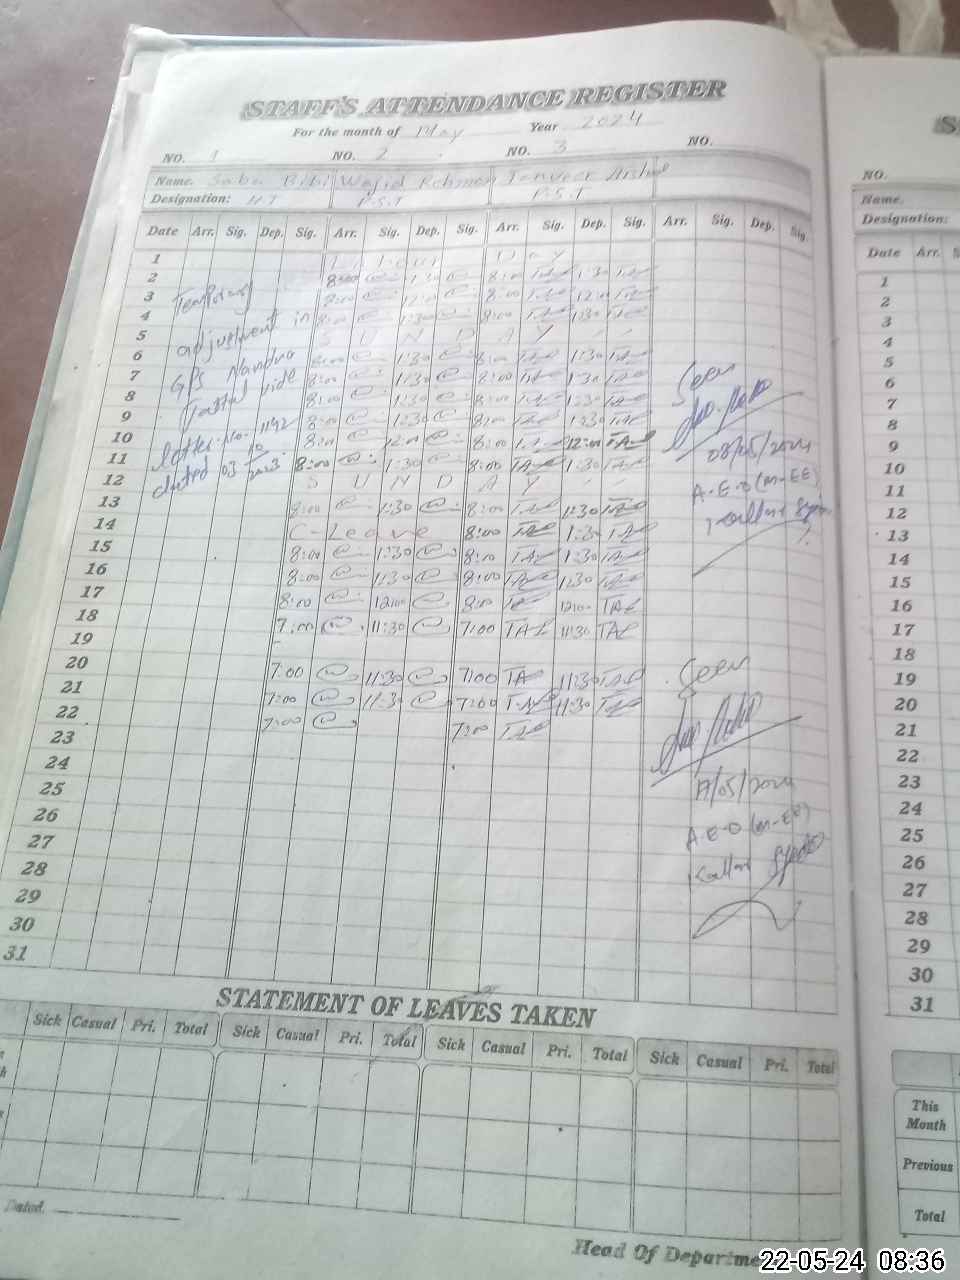 STAFF'S ATTENDANCE REGISTER
For the month of May Year 2024
NO. 1 NO. 2 NO. 3 NO.
Name. Saba Bibi Wajid Rehman Tanveer Arshad
Designation: H.T P.S.T P.S.T
Date Arr. Sig. Dep. Sig. Arr. Sig. Dep. Sig. Arr. Sig. Dep. Sig. Arr. Sig. Dep. Sig.
1 Labour Day
2 8:00 1:30 8:00 1:30
3 8:00 12:00 8:00 12:00
4 8:00 1:30 8:00 1:30
5 S U N D A Y
6 8:00 1:30 8:00 1:30
7 8:00 1:30 8:00 1:30
8 8:00 1:30 8:00 1:30
9 8:00 1:30 8:00 1:30
10 8:00 12:00 8:00 12:00
11 8:00 1:30 8:00 1:30
12 S U N D A Y
13 8:00 1:30 8:00 1:30
14 C-Leave 8:00 1:30
15 8:00 1:30 8:00 1:30
16 8:00 1:30 8:00 1:30
17 8:00 12:00 8:00 12:00
18 7:00 11:30 7:00 11:30
19
20 7:00 11:30 7:00 11:30
21 7:00 11:30 7:00 11:30
22 7:00 7:00
23
24
25
26
27
28
29
30
31
adjustment in
GPS
vide
letter No. 1142
dated 03
Seen
08/05/2024
A.E.O (M-EE)
Seen
17/05/2024
A.E.O (M-EE)
Kallar
STATEMENT OF LEAVES TAKEN
Sick Casual Pri. Total Sick Casual Pri. Total Sick Casual Pri. Total Sick Casual Pri. Total
Dated.
Head Of Departme
NO.
Name.
Designation:
Date Arr.
1
2
3
4
5
6
7
8
9
10
11
12
13
14
15
16
17
18
19
20
21
22
23
24
25
26
27
28
29
30
31
This
Month
Previous
Total
22-05-24 08:36